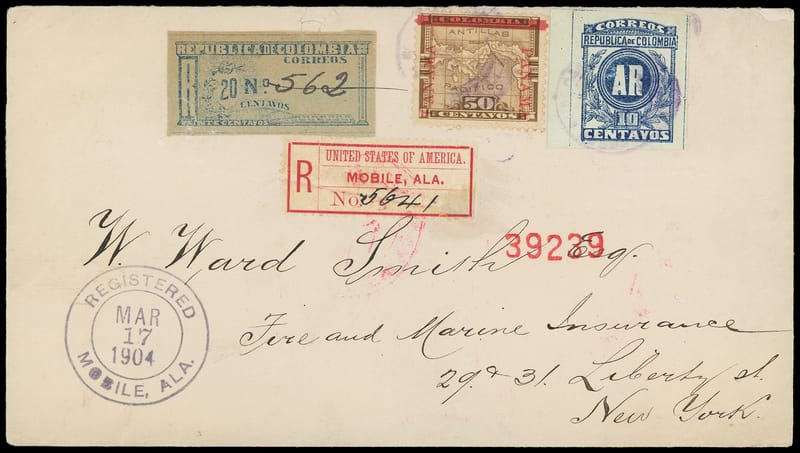 REPUBLICA DE COLOMBIA
CORREOS
R 20 No 562
CENTAVOS
VEINTE CENTAVOS
COLOMBIA
ANTILLAS
PANAMA
PANAMA
PACIFICO
50
CENTAVOS
CORREOS
REPUBLICA DE COLOMBIA
AR
10
CENTAVOS
UNITED STATES OF AMERICA.
R MOBILE, ALA.
No. 5641
39239
W. Ward Smith Esq.
Fire and Marine Insurance
29 & 31. Liberty st.
New York.
REGISTERED
MAR
17
1904
MOBILE, ALA.